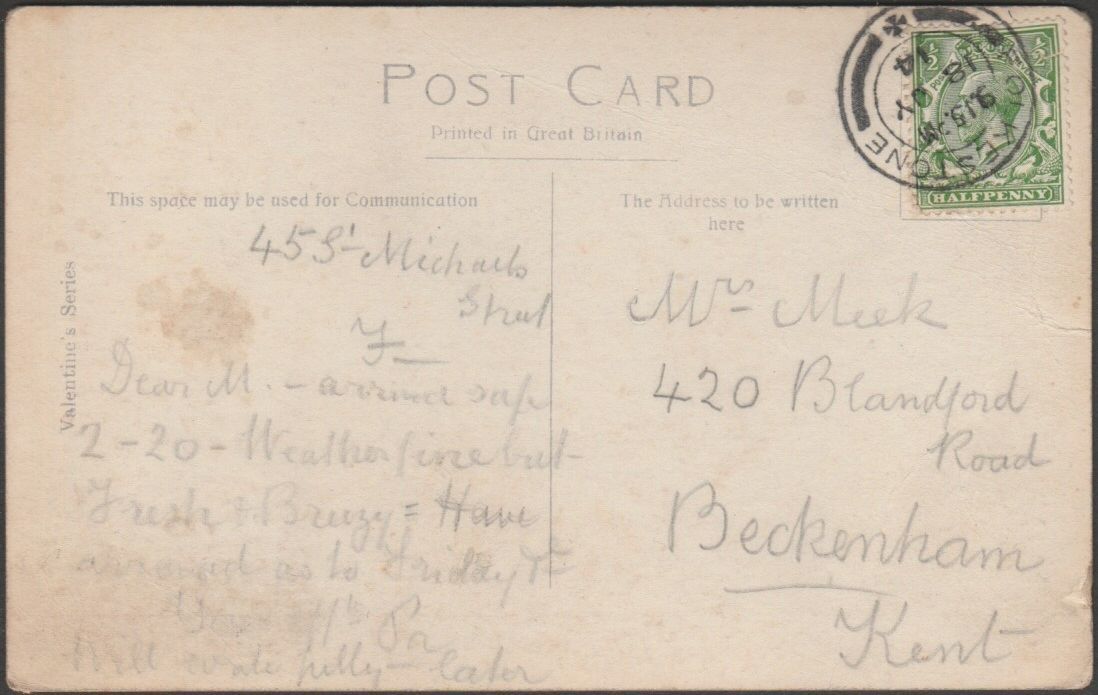 POST CARD
Printed in Great Britain
This space may be used for Communication
The Address to be written
here
Valentine's Series
FOLKESTONE
9.15 PM
18 JY
14
½ ½
HALFPENNY
45 St Michaels
Street
F—
Dear M. – arrived safe
2-20 – Weather fine but
Fresh & Breezy = Have
arranged as to Friday
Will write fully – later
Mrs Meek
420 Blandford
Road
Beckenham
Kent